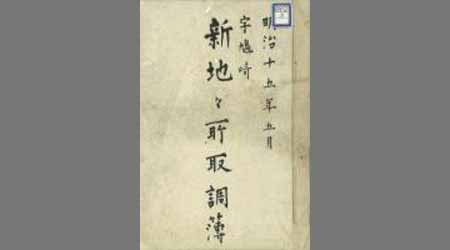 明治十五年五月
字鳩崎
新地々所取調簿